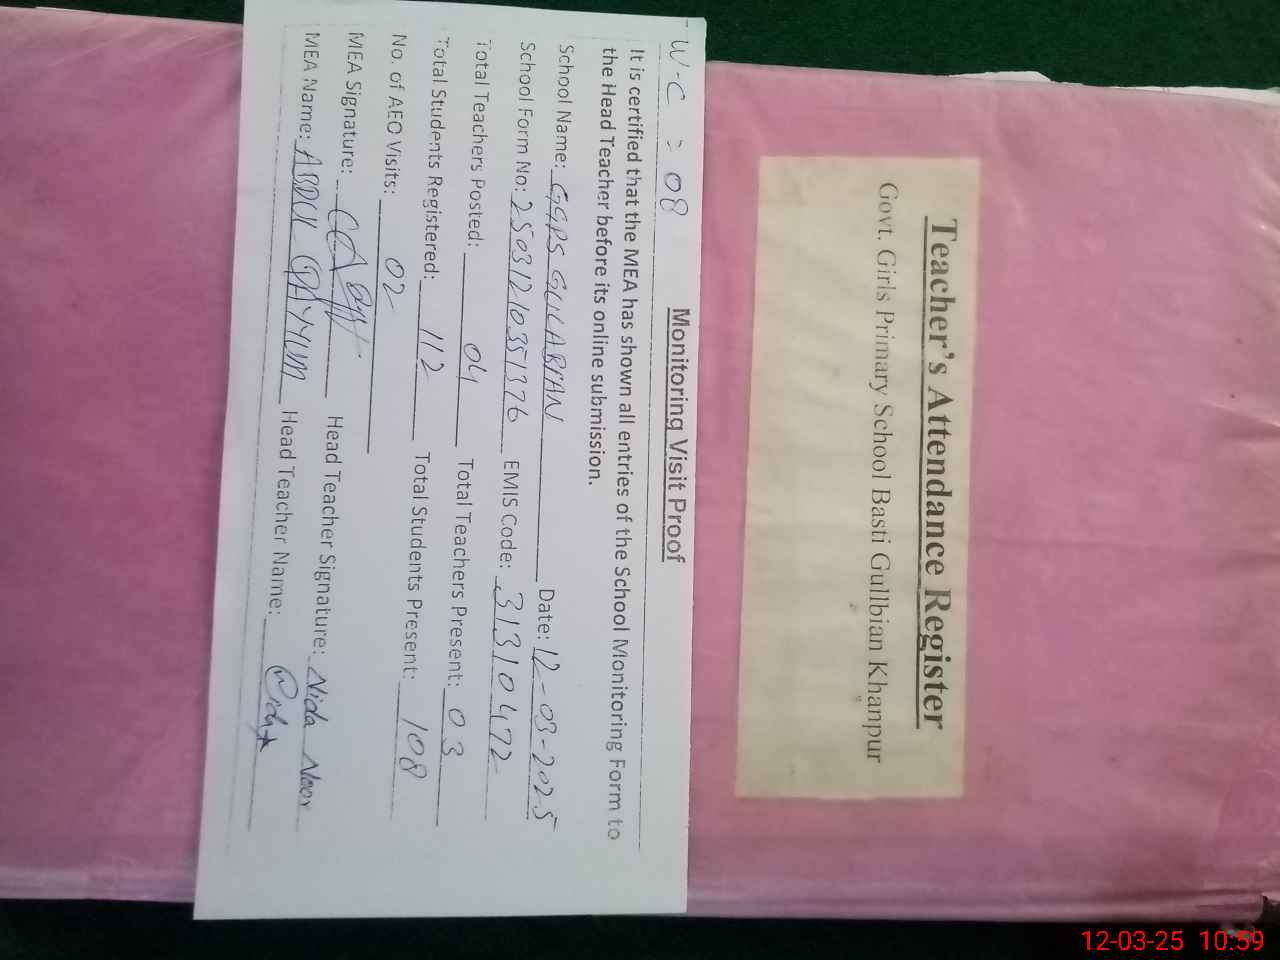 Teacher's Attendance Register
Govt. Girls Primary School Basti Gullbian Khanpur
-W-C = 08
Monitoring Visit Proof
It is certified that the MEA has shown all entries of the School Monitoring Form to
the Head Teacher before its online submission.
School Name: GGPS GULABIAN Date: 12-03-2025
School Form No: 25031210351376 EMIS Code: 31310472
Total Teachers Posted: 04 Total Teachers Present: 03
Total Students Registered: 112 Total Students Present: 108
No. of AEO Visits: 02
MEA Signature: Head Teacher Signature: Nida Noor
MEA Name: ABDUL QAYYUM Head Teacher Name:
12-03-25 10:59